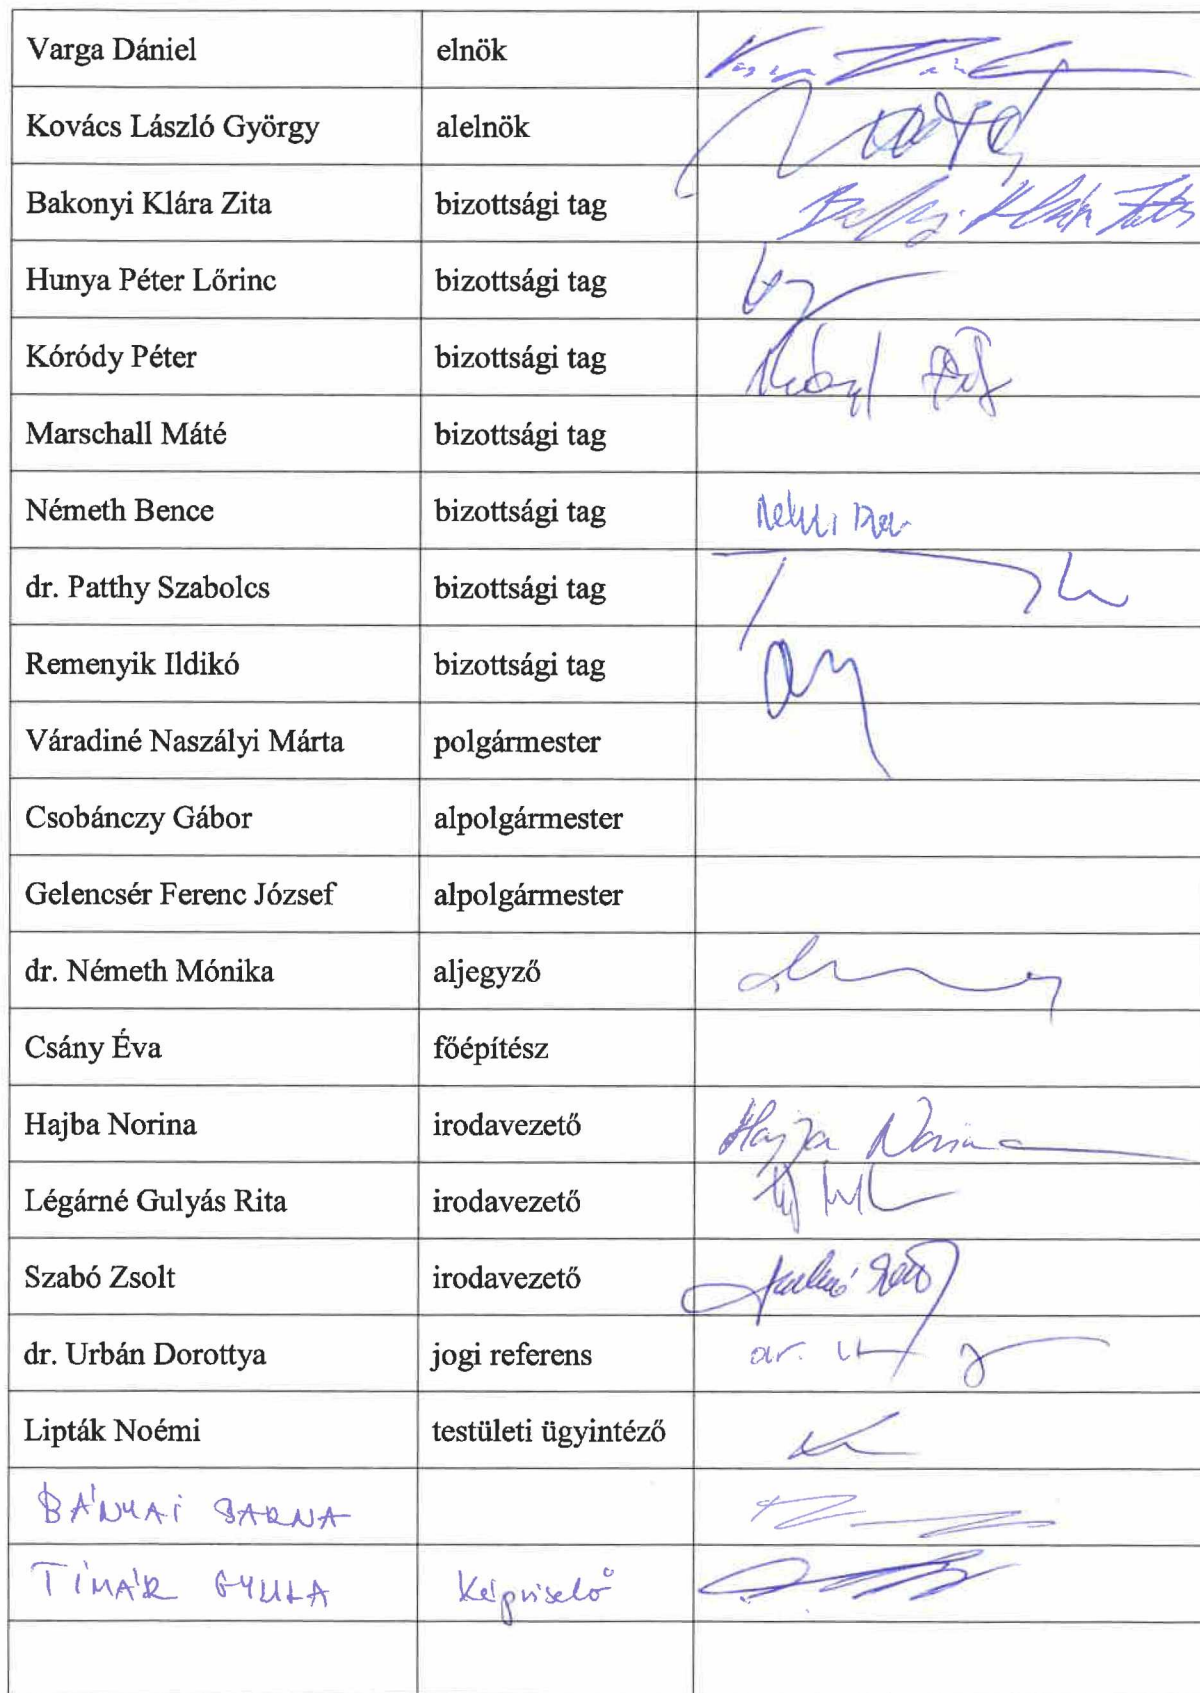 Varga Dániel elnök
Kovács László György alelnök
Bakonyi Klára Zita bizottsági tag
Hunya Péter Lőrinc bizottsági tag
Kóródy Péter bizottsági tag
Marschall Máté bizottsági tag
Németh Bence bizottsági tag
dr. Patthy Szabolcs bizottsági tag
Remenyik Ildikó bizottsági tag
Váradiné Naszályi Márta polgármester
Csobánczy Gábor alpolgármester
Gelencsér Ferenc József alpolgármester
dr. Németh Mónika aljegyző
Csány Éva főépítész
Hajba Norina irodavezető Hajba Norina
Légárné Gulyás Rita irodavezető
Szabó Zsolt irodavezető
dr. Urbán Dorottya jogi referens dr.
Lipták Noémi testületi ügyintéző
BÁNYAI BARNA
TÍMÁR GYULA képviselő